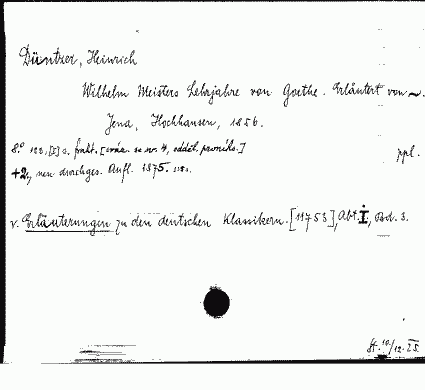 Düntzer, Heinrich
Wilhelm Meisters Lehrjahre von Goethe. Erläutert von ~.
Jena, Hochhausen, 1856.
8° 122, [2] s. frakt. ppl.
+2., neu durchges. Aufl. 1875.
v. Erläuterungen zu den deutschen Klassikern. [11753], Abt. I, Bd. 3.